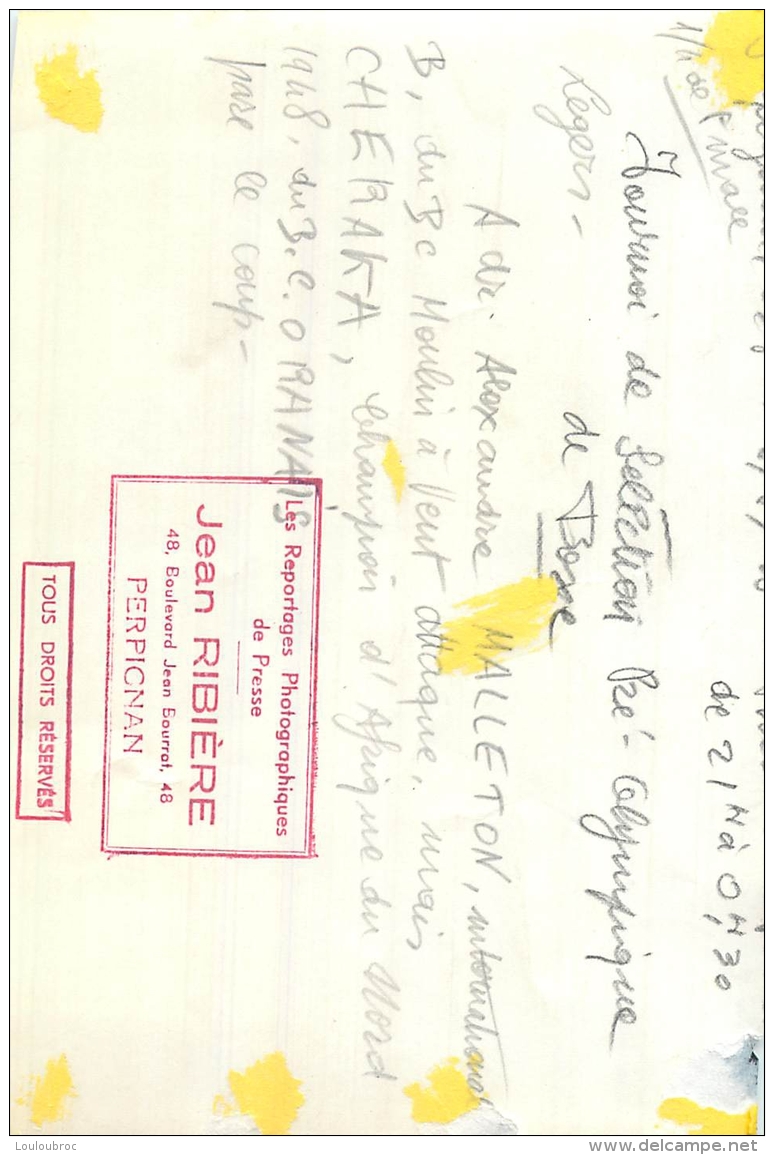 de 21H à 0H,30
1/4 de finale
Tournoi de Sélection Pré-Olympique
de Boxe
Légers -
A dr. Alexandre MALLETON, international
B, du BC Moulin à Vent attaque, mais
CHERAKA, Champion d'Afrique du Nord
1948, du B.C. ORANAIS
pare le coup -
Les Reportages Photographiques
de Presse
Jean RIBIÈRE
48, Boulevard Jean Bourrat, 48
PERPIGNAN
TOUS DROITS RÉSERVÉS
Louloubroc
delcampe.net